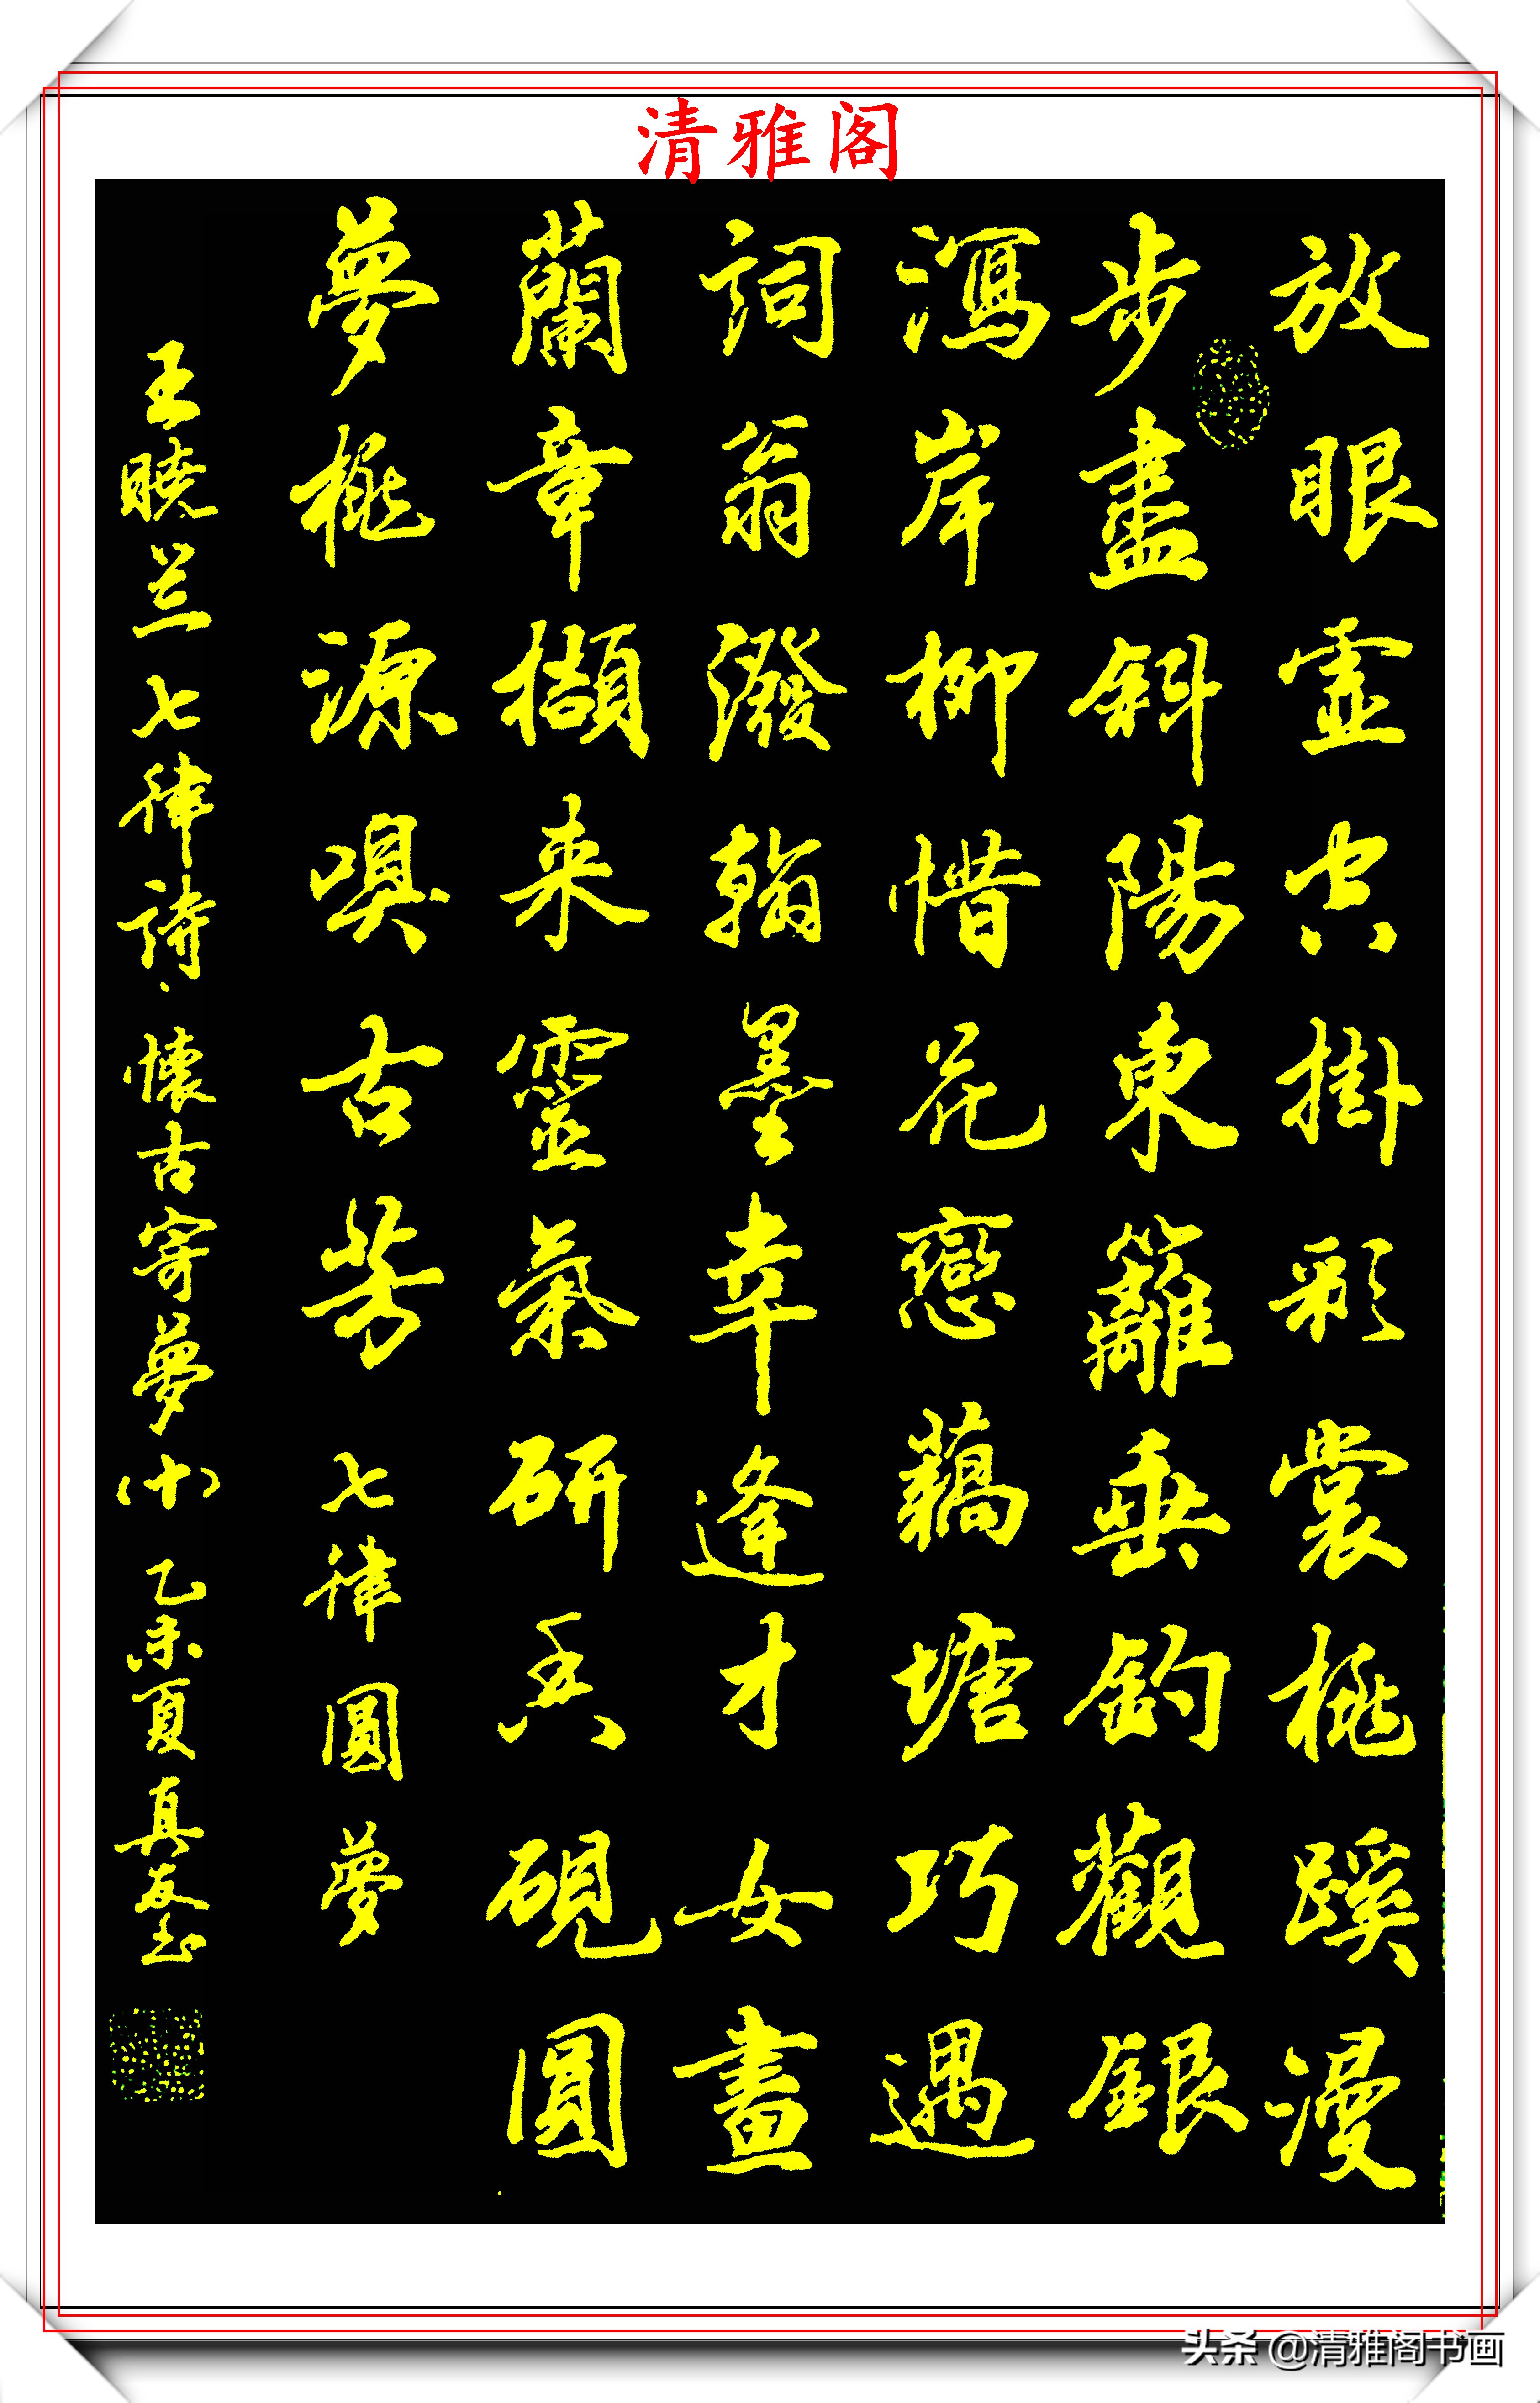 清雅阁
放眼虛空掛彩裳桃蹊漫
步盡斜陽東籬垂釣觀銀
瀉岸柳惜花戀藕塘巧遇
詞翁潑翰墨幸逢才女畫
蘭章擷来靈氣研香硯圓
夢桃源嗅古芳 七律圓夢
王曉兰七律詩·懷古寄夢(十) 乙未夏真友书
头条 @清雅阁书画